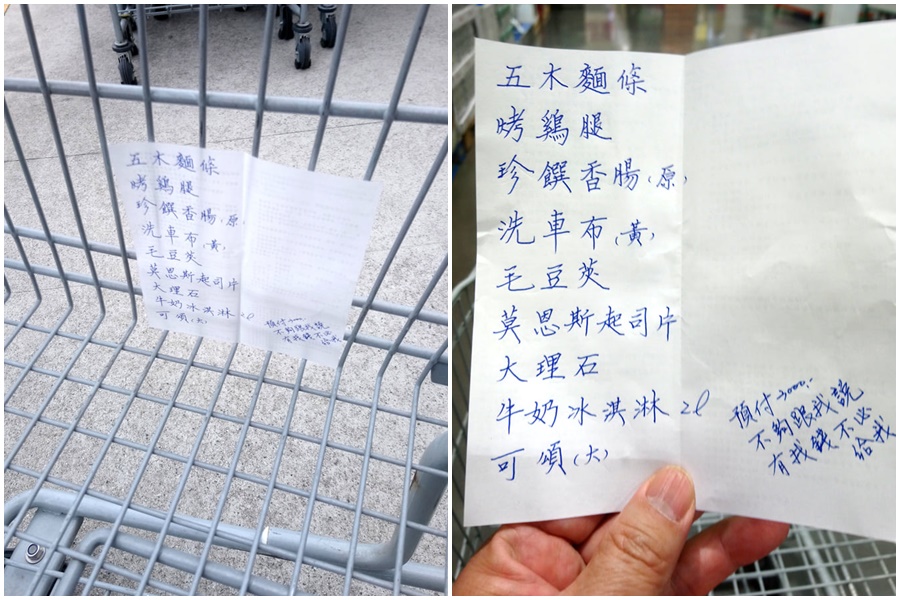 五木麵條
烤鷄腿
珍饌香腸(原)
洗車布(黃)
毛豆莢
莫恩斯起司片
大理石
牛奶冰淇淋 2l
可頌(大)
預付3000.-
不夠跟我說
有找錢不必
給我
五木麵條
烤鷄腿
珍饌香腸(原)
洗車布(黃)
毛豆莢
莫恩斯起司片
大理石
牛奶冰淇淋 2l
可頌(大)
預付3000.-
不夠跟我說
有找錢不必
給我